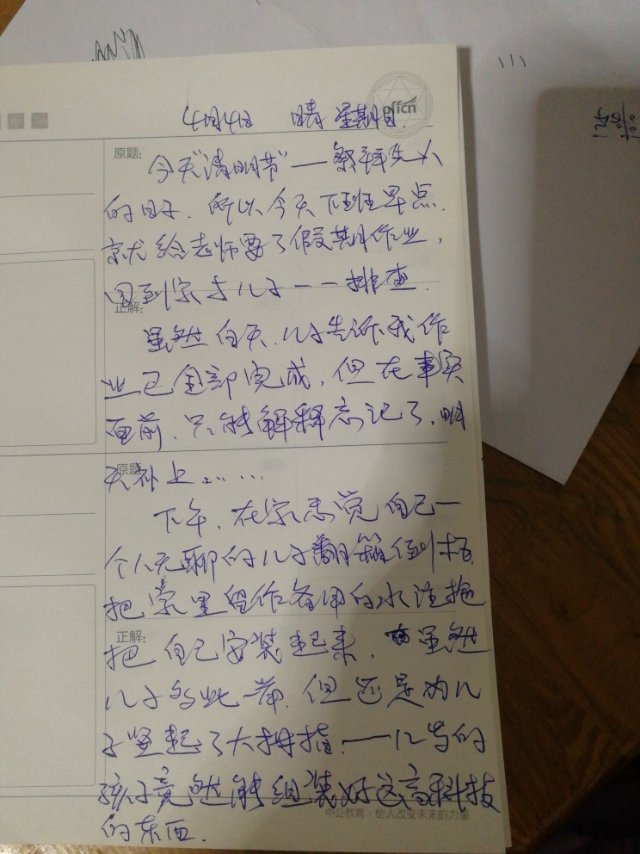 offcn
4月4日 晴 星期日
原题:
今天"清明节"—祭拜先人
的日子.所以今天下班早点.
就给老师要了假期作业,
回到家与儿子一一排查.
正解:
虽然白天,儿子告诉我作
业已全部完成,但在事实
面前,只能解释忘记了,明
原题
天补上……
下午,在家感觉自己一
个人无聊的儿子翻箱倒柜.
把家里留作备用的水洗拖
正解:
把自己安装起来.虽然
儿子多此一举,但还是为儿
子竖起了大拇指.—12岁的
孩子竟然能组装好这高科技
中公教育·给人改变未来的力量
的东西.
125